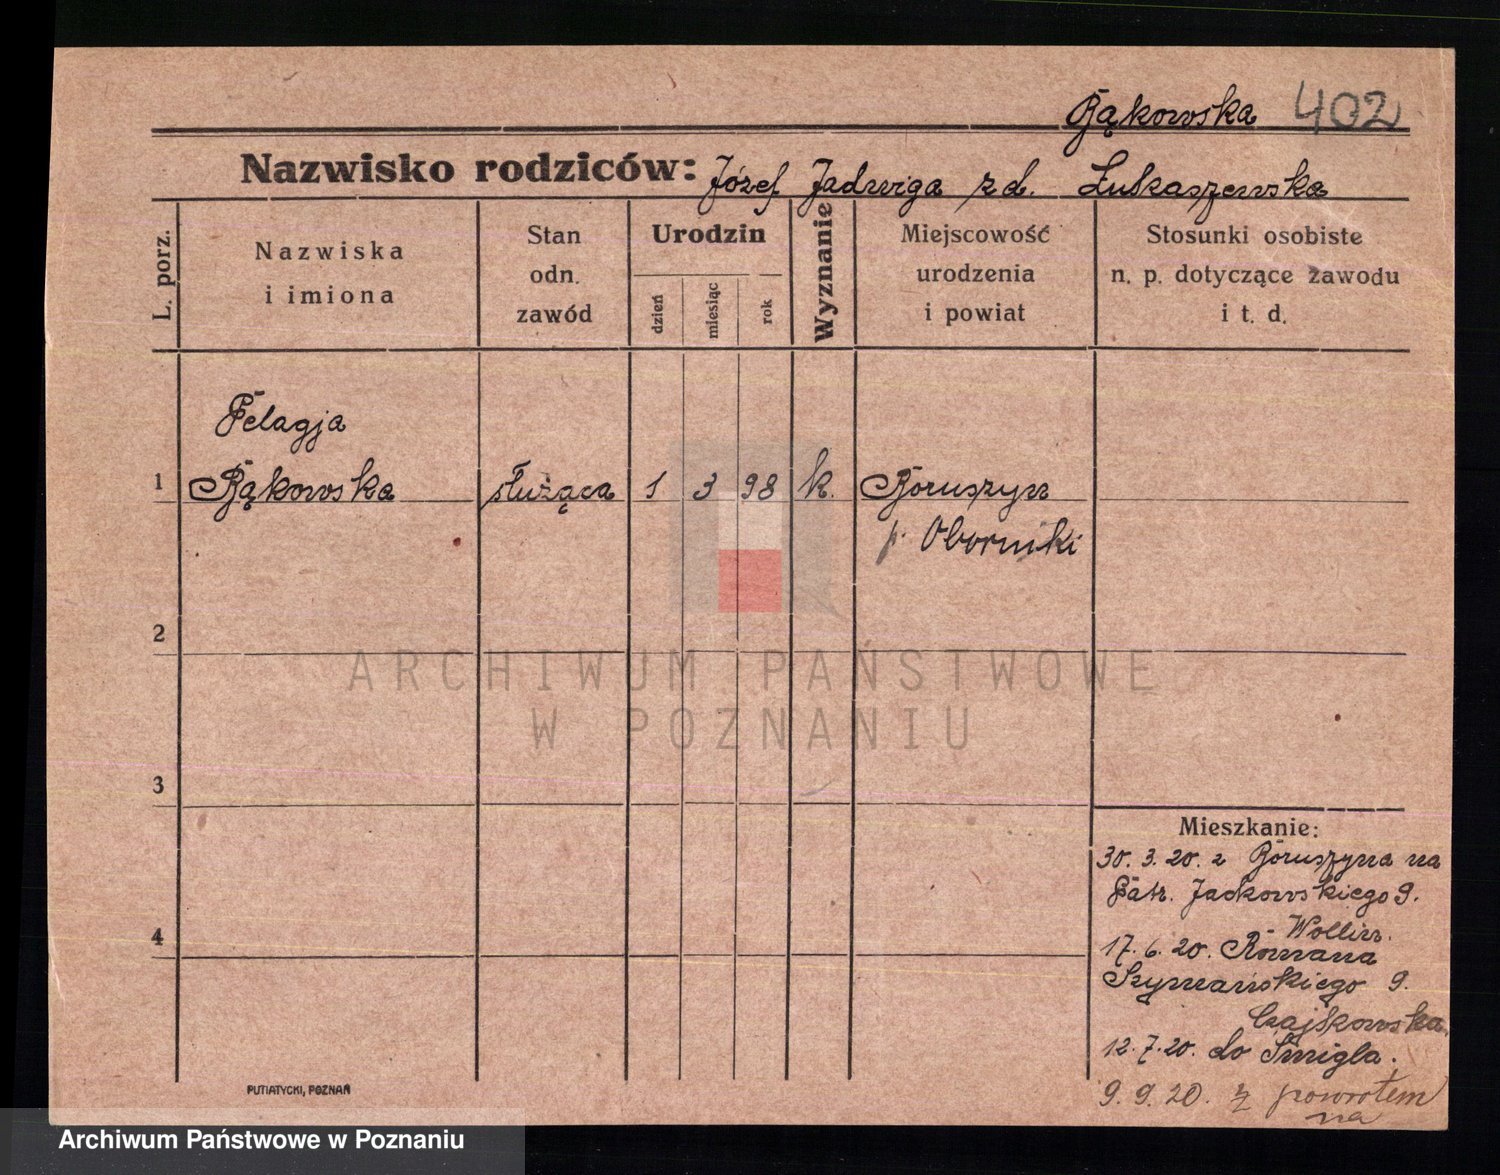 Bąkowska 402
Nazwisko rodziców: Józef Jadwiga z d. Łukaszewska
L. porz.
Nazwiska
i imiona
Stan
odn.
zawód
Urodzin
dzień
miesiąc
rok
Wyznanie
Miejscowość
urodzenia
i powiat
Stosunki osobiste
n. p. dotyczące zawodu
i t. d.
Pelagja
1 Bąkowska służąca 1 3 98 k. Boruszyn
p. Oborniki
2
3
4
ARCHIWUM PAŃSTWOWE
W POZNANIU
Mieszkanie:
30. 3. 20. z Boruszyna na
Patr. Jackowskiego 9.
Wollin.
17. 6. 20. Romana
Szymańskiego 9.
Czajkowska.
12. 7. 20. do Śmigla.
9. 9. 20. z powrotem
na
PUTIATYCKI, POZNAŃ
Archiwum Państwowe w Poznaniu